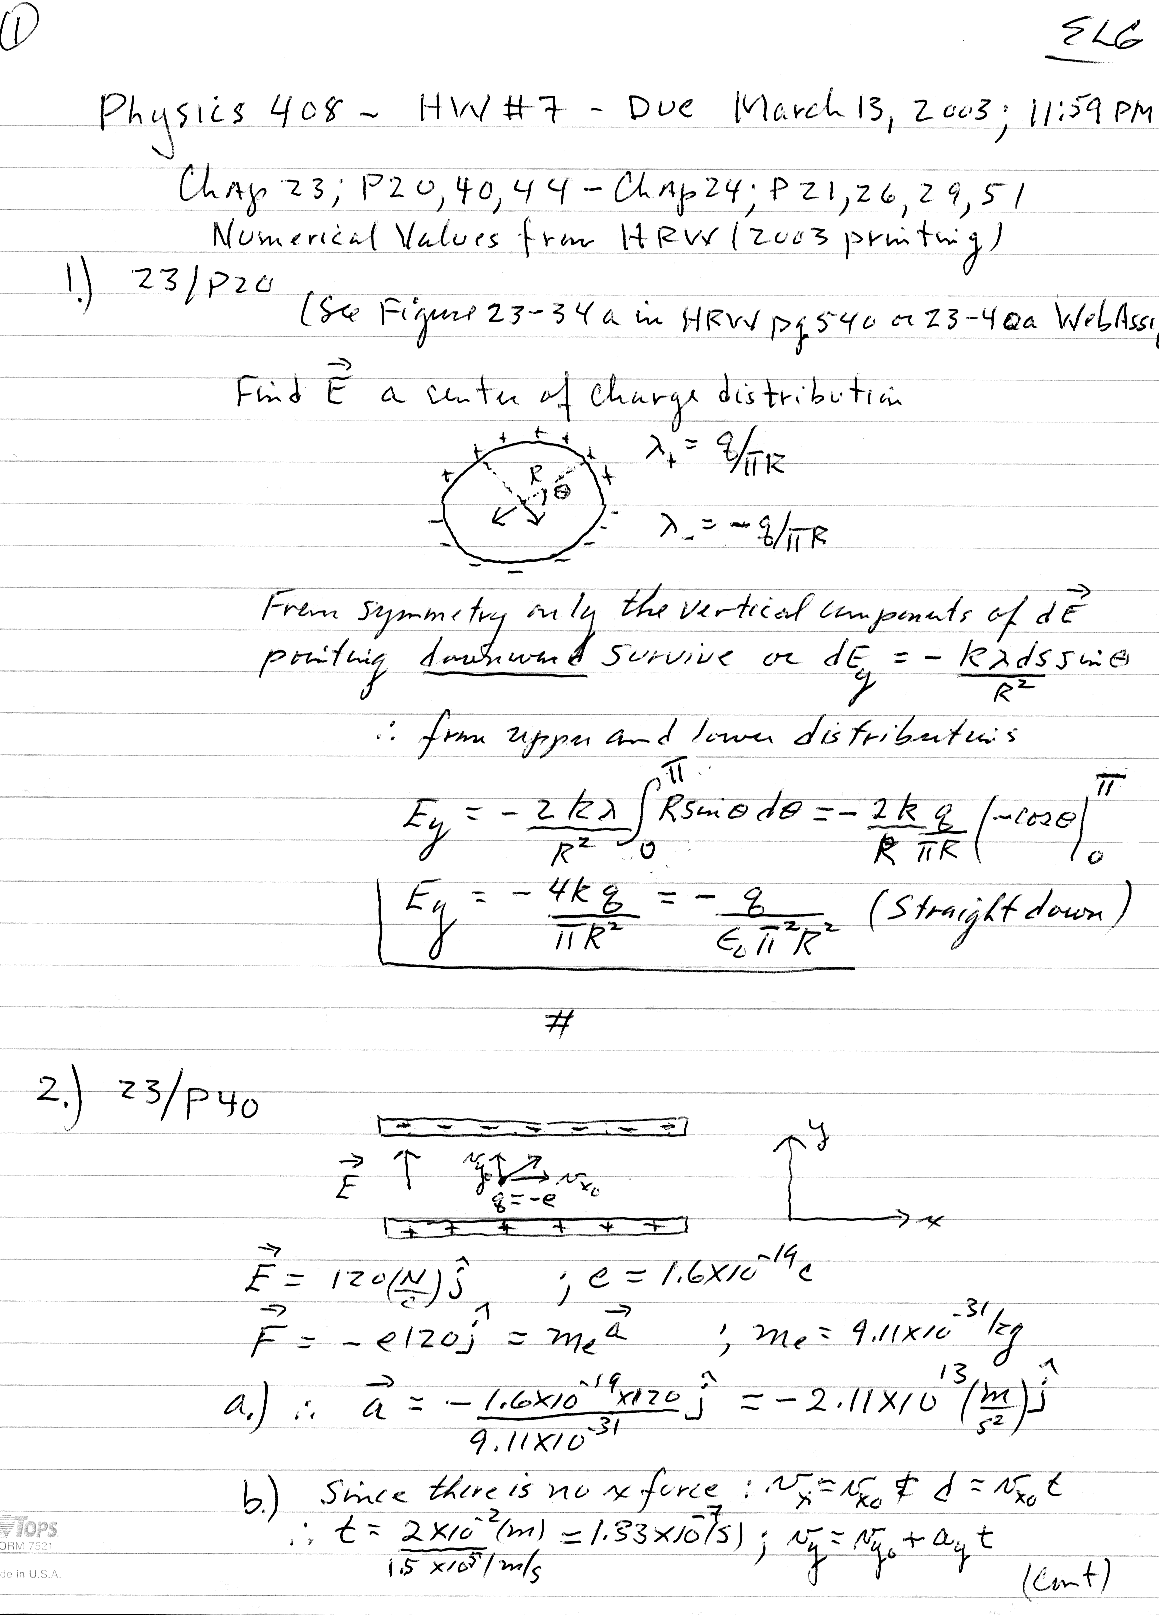 1
ELG
Physics 408 ~ HW #7 - Due March 13, 2003; 11:59 PM
Chap 23; P20, 40, 44 - Chap 24; P21, 26, 29, 51
Numerical Values from HRW (2003 printing)
1.) 23/P20
(See Figure 23-34a in HRW pg 540 or 23-40a WebAssi
Find E⃗ a center of charge distribution
+ + + + + + +
λ₊ = q/πR
R
θ
λ₋ = -q/πR
- - - - - - -
From symmetry only the vertical components of dE⃗
pointing downward survive or dE_y = - kλds sinθ / R²
∴ from upper and lower distributions
E_y = - 2kλ/R² ∫₀^π R sinθ dθ = - 2k/R q/πR (-cosθ|₀^π
E_y = - 4kq/πR² = - q/ε₀π²R² (Straight down)
#
2.) 23/P40
- - - - - -
y
E⃗ v_y₀ v_x₀
q = -e
+ + + + + +
x
E⃗ = 120(N/C)ĵ ; e = 1.6X10⁻¹⁹C
F⃗ = -e120ĵ = mₑa⃗ ; mₑ = 9.11X10⁻³¹kg
a.) ∴ a⃗ = - 1.6X10⁻¹⁹X120/9.11X10⁻³¹ ĵ = -2.11X10¹³(m/s²)ĵ
b.) Since there is no x force : v_x = v_x₀ & d = v_x₀t
∴ t = 2X10⁻²(m)/1.5X10⁵(m/s = 1.33X10⁻⁷(s) ; v_y = v_y₀ + a_y t
(cont)
TOPS
ORM 7521
de in U.S.A.